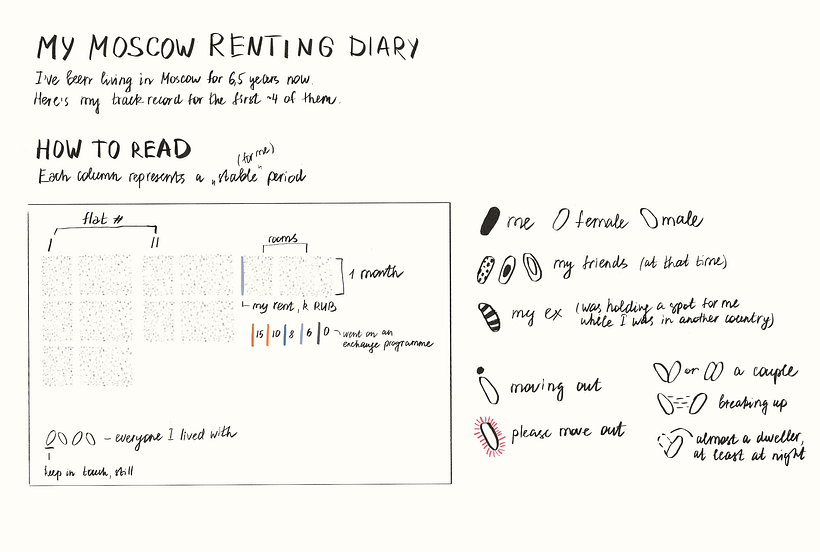 MY MOSCOW RENTING DIARY
I've been living in Moscow for 6,5 years now.
Here's my track record for the first ~4 of them.
HOW TO READ
(for me)
Each column represents a „stable" period
flat #
I
II
rooms
1 month
my rent, k RUB
15 10 8 6 0
went on an
exchange programme
– everyone I lived with
keep in touch, still
me
female
male
my friends (at that time)
my ex (was holding a spot for me
while I was in another country)
moving out
please move out
or
a couple
breaking up
almost a dweller,
at least at night